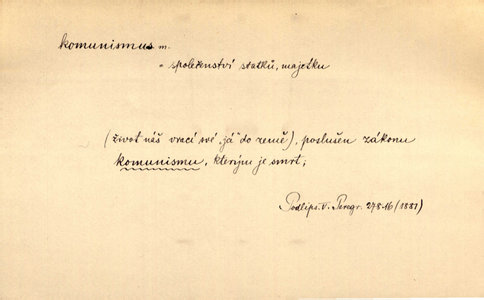 komunismus m.
= společenství statků, majetku
(život náš vrací své „já" do země), poslušen zákonu
komunismu, kterým je smrt;
Podlips. V. Peregr. 278.16 (1881)